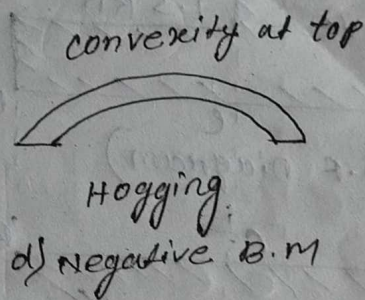 convexity at top
Hogging.
d) Negative B.M